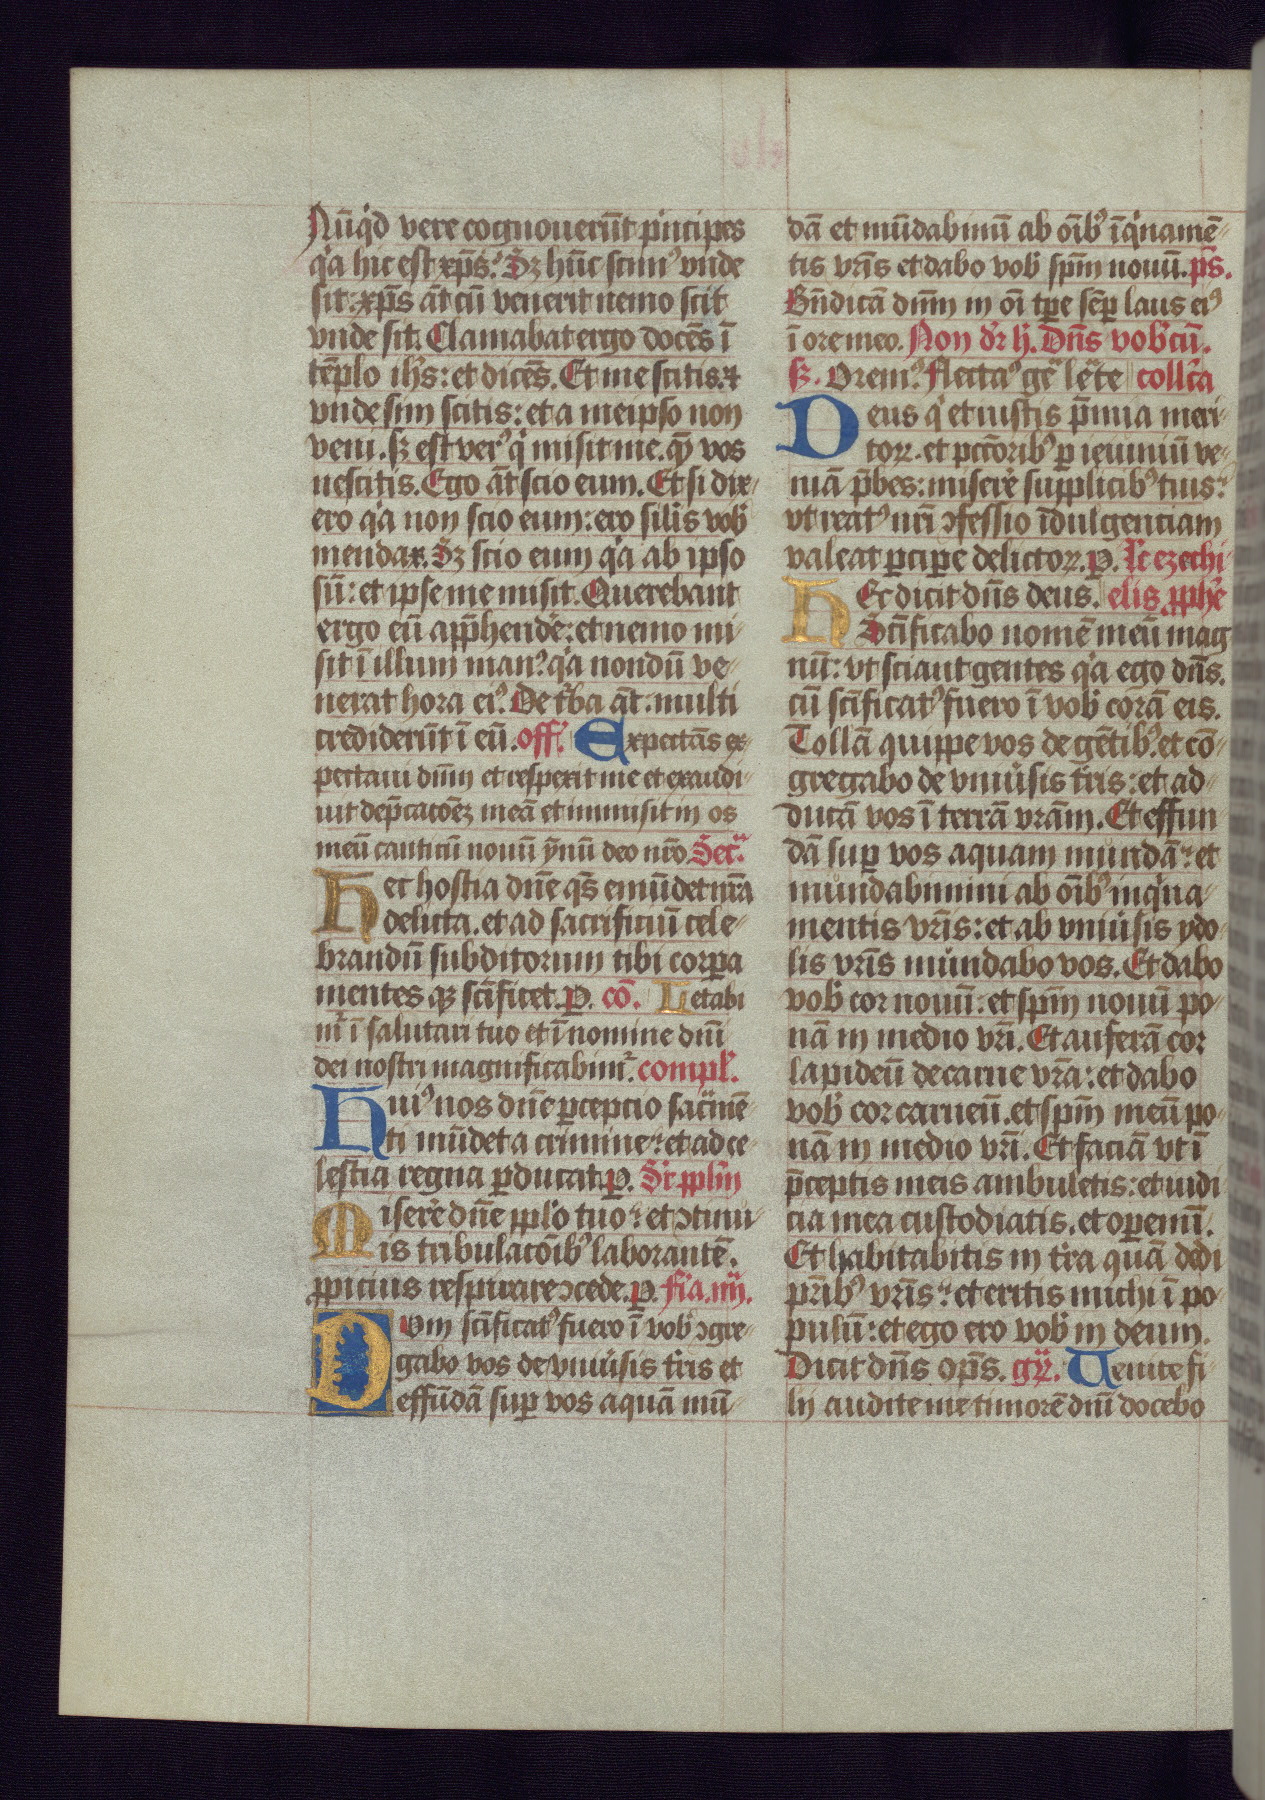 Nūq̇d vere cognouerūt pͥncipes
qͥa hic est xp̄s. Sꝫ hūc scimꝰ vnde
sit: xp̄s āt cū venerit nemo scit
vnde sit. Clamabat ergo docēs ī
tēplo ihs̄: et dicēs. Et me scitis. ⁊
vnde sim scitis: et a meipso non
veni. sꝫ est verꝰ qͥ misit me. quē vos
nescitis. Ego āt scio eum. Et si dix-
ero qͥa non scio eum: ero silis vob̄
mendax. Sꝫ scio eum qͥa ab ipso
sū: et ipse me misit. Querebant
ergo eū app̄hendē: et nemo mi-
sit ī illum manꝰ qͥa nondū ve-
nerat hora eiꝰ. De tͥba āt: multi
crediderūt ī eū. off. Expectās ex-
pectaui dn̄m et respexit me et exaudi-
uit dep̄cacōeꝫ meā et inmisit in os
meū canticū nouū ẏnū deo nrō. Secͣ.
Hec hostia dn̄e qs̄ emūdet nrā
delicta. et ad sacrificiū cele-
brandū subditorum tibi corꝑa
mentes qꝫ scīficet. P. cō. Letabi
mͬ ī salutari tuo et ī nomine dnī
dei nostri magnificabimͬ. compl̄.
Huiꝰ nos dn̄e ꝑcepcio sacͣmē-
ti mūdet a crimine: et ad ce-
lestia regna ꝑducat. P. Sr̄ ppl̄m
Miserē dn̄e pplo tuo: et ꝯtinu-
is tribulacōibꝰ laborantē.
ꝓpicius respirare ꝯcede. P. fīa. iiij.
Dvm scīficatꝰ fuero ī vob̄ ꝯgre-
gabo vos de vniūsis tr̄is et
effūdā suꝑ vos aquā mū-
dā et mūdabimī ab oībꝰ īqͥnamē-
tis vrīs et dabo vob̄ sp̄m nouū. ps̄.
Bn̄dicā dn̄m in oī tꝑe sēꝑ laus eiꝰ
ī ore meo. Non dr̄ h̄. Dn̄s vob̄cū.
sꝫ. Oremꝰ. flectaꝰ geͣ leͣte collc̄a
Deus qͥ et iustis p̄mia meri-
toꝝ. et pctōribꝰ ꝑ ieiuniū ve-
niā p̄bes: miserē supplicibꝰ tuis:
vt reatꝰ nrī ꝯfessio īdulgenciam
valeat ꝑciꝑe delictoꝝ. P. Lc̄ ezechi-
Ec dicit dn̄s deus. elis ꝓphē
Scīficabo nomē meū mag
nū: vt sciant gentes qͥa ego dn̄s.
cū scīficatꝰ fuero ī vob̄ corā eis.
Tollā quippe vos de gētibꝰ. et cō-
gregabo de vniūsis tr̄is: et ad-
ducā vos ī terrā vrām. Et effun
dā suꝑ vos aquam mundā: et
mundabimini ab oībꝰ inqͥna-
mentis vrīs: et ab vniūsis ydo-
lis vrīs mundabo vos. Et dabo
vob̄ cor nouū: et sp̄m nouū po-
nā in medio vrī. Et auferā cor
lapideū de carne vrā: et dabo
vob̄ cor carneū. et sp̄m meū po-
nā in medio vrī. Et faciā vt ī
p̄ceptis meis ambuletis: et iudi
cia mea custodiatis. et oꝑemī.
Et habitabitis in tr̄a quā dedi
prībꝰ vrīs: et eritis michi ī po-
pulū: et ego ero vob̄ in deum.
Dicit dn̄s ops̄. gͬ. Venite fi-
lij audite me timorē dnī docebo